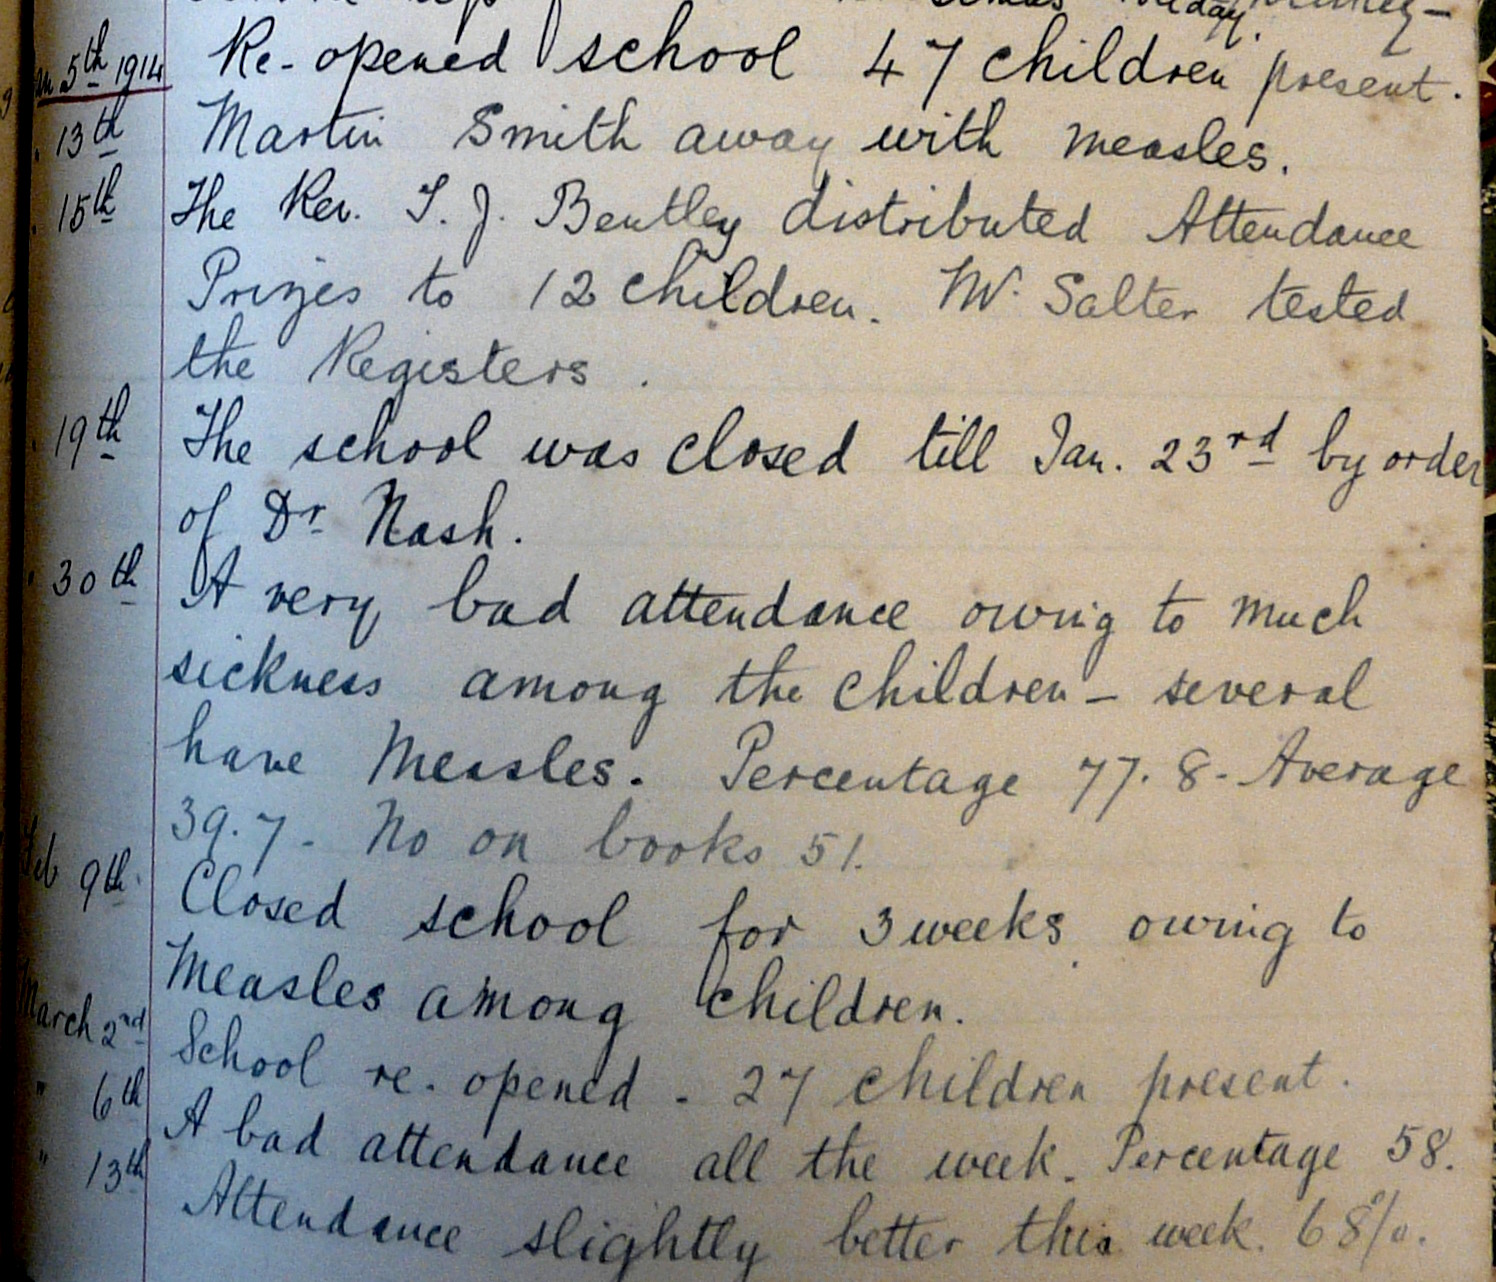 Jan 5th 1914 Re-opened school 47 children present.
" 13th Martin Smith away with measles.
" 15th The Rev. T. J. Bentley distributed Attendance
Prizes to 12 children. Mr. Salter tested
the Registers.
" 19th The school was closed till Jan. 23rd by order
of Dr Nash.
" 30th A very bad attendance owing to much
sickness among the children - several
have Measles. Percentage 77.8 - Average
39.7 - No on books 51.
Feb 9th. Closed school for 3 weeks owing to
Measles among children.
March 2nd School re-opened - 27 children present.
" 6th A bad attendance all the week. Percentage 58.
" 13th Attendance slightly better this week. 68%.